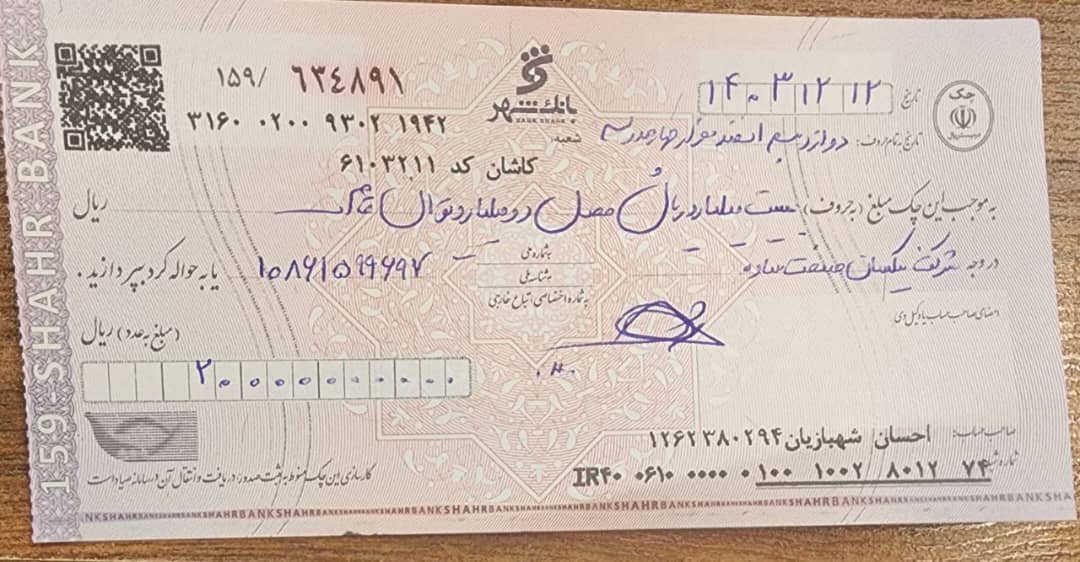 159-SHAHR BANK
۱۵۹/ ۶۳٤۸۹۱
۳۱۶۰ ۰۲۰۰ ۹۳۰۲ ۱۹۴۲
بانک شهر
SHAHR BANK
شعبه:
کاشان کد ۶۱۰۳۲۱۱
تاریخ ۱۴۰۳ ۱۲ ۱۲
چک
تاریخ به تمام حروف: دوازدهم اسفند هزار چهارصد سه
به موجب این چک مبلغ (به حروف) بیست میلیارد ریال معادل دو میلیارد تومان تمام ریال
در وجه شرکت یکسان صنعت ساوه
به شماره ملی
به شناسه ملی
به شماره اختصاصی اتباع خارجی
۱۰۸۶۱۵۹۹۶۹۷ یا به حواله کرد بپردازید.
امضای صاحب حساب یا وکیل وی
مبلغ (به عدد) ریال
۲۰۰۰۰۰۰۰۰۰۰
صاحب حساب: احسان شهبازیان ۱۲۶۲۳۸۰۲۹۴
شماره شبا IR۴۰ ۰۶۱۰ ۰۰۰۰ ۰۱۰۰ ۱۰۰۲ ۸۰۱۲ ۷۴
کارسازی این چک منوط به ثبت صدور، دریافت و انتقال آن در سامانه صیاد است